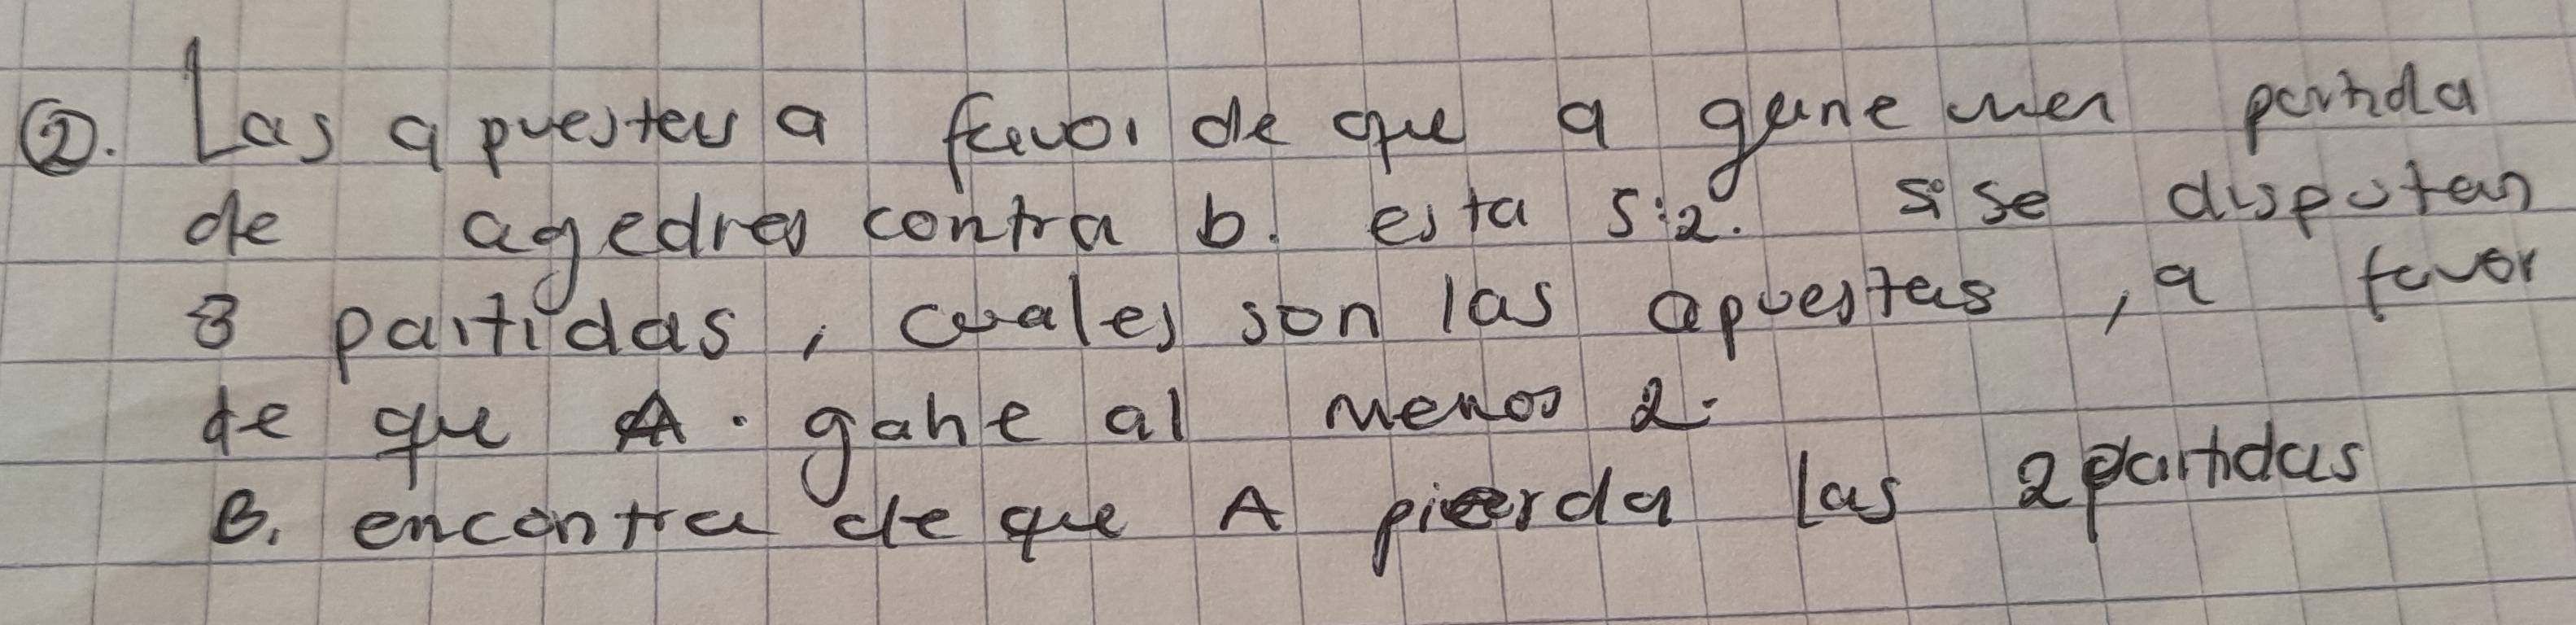 ②. Las apuestas a favor de que a gane una partida
de agedres contra b. esta 5:2. si se disputan
3 partidas, cuales son las apuestas, a favor
de que A. gane al menos 2.
B. encontra de que A pierda las 2 partidas